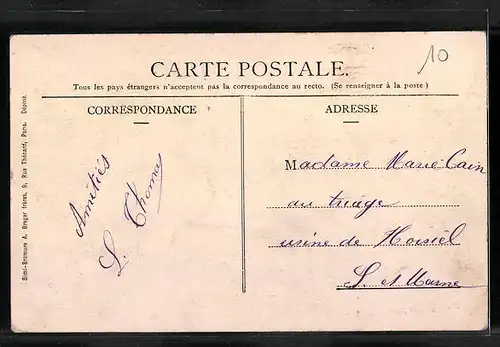 10
CARTE POSTALE.
Tous les pays étrangers n'acceptent pas la correspondance au recto. (Se renseigner à la poste)
CORRESPONDANCE
ADRESSE
Amitiés
L. Thomas
Madame Marie Cain
au triage
usine de Noisiel
S. et Marne
Simi-Bromure A. Breger frères, 9, Rue Thénard, Paris. Déposé.